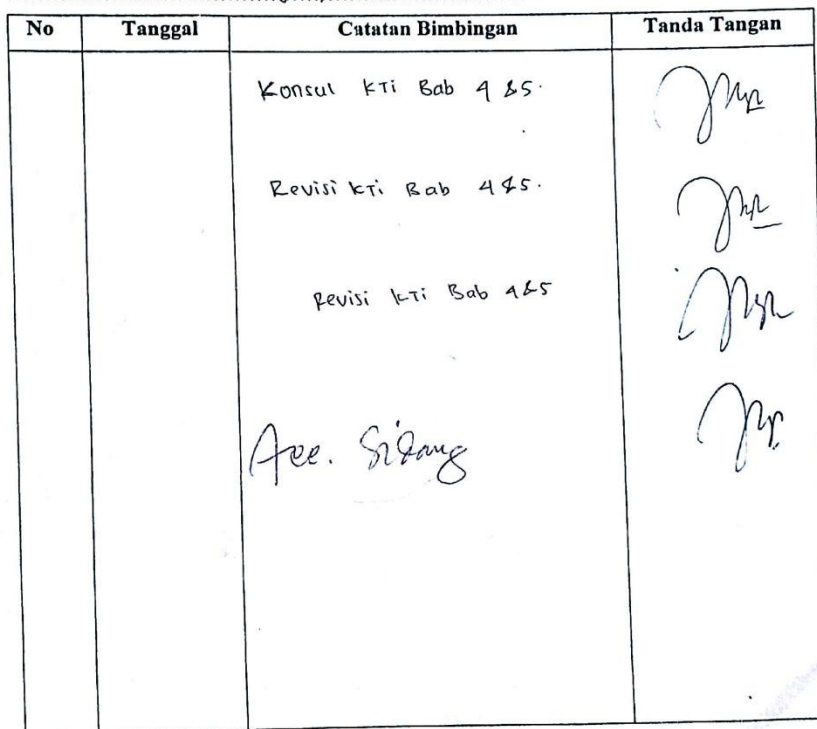 No Tanggal Catatan Bimbingan Tanda Tangan
Konsul KTi Bab 4 &5.
Revisi KTi Bab 4 &5.
Revisi KTi Bab 4 &5
Acc. Sidang